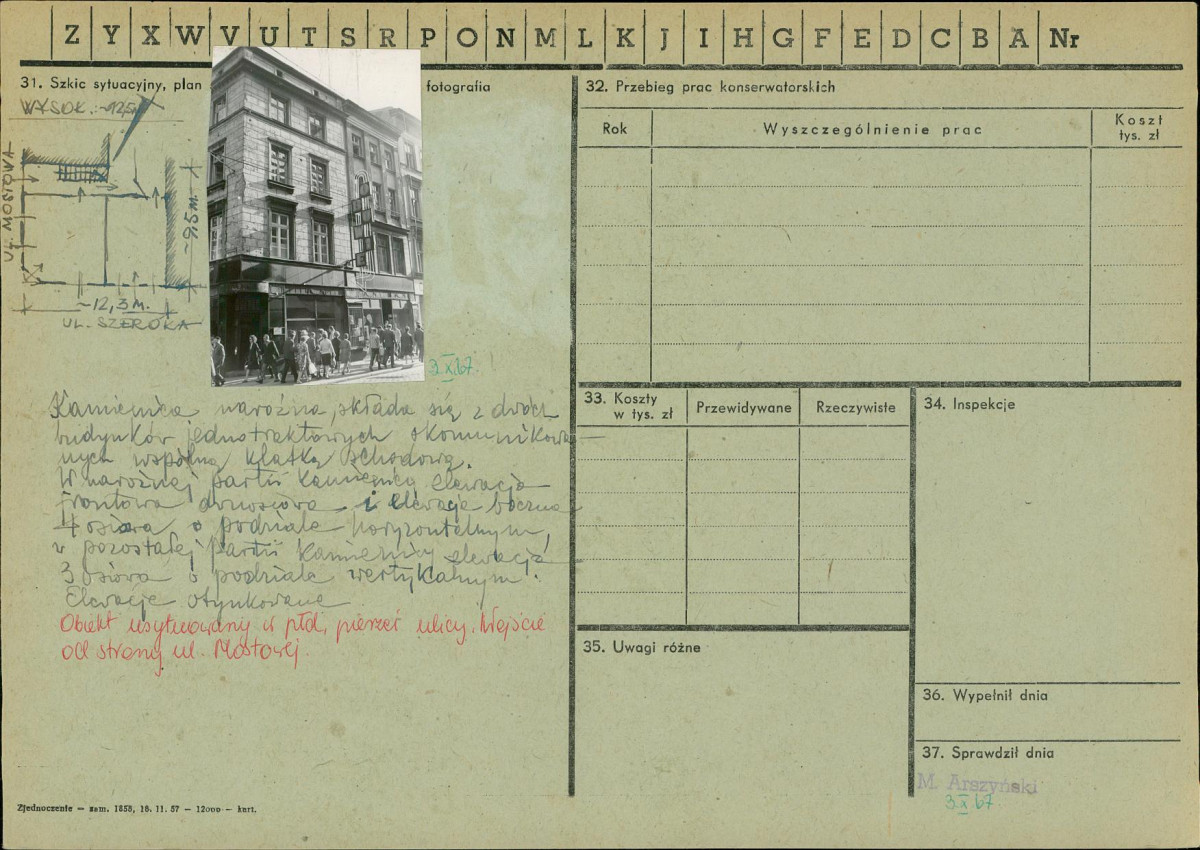 Z Y X W V U T S R P O N M L K J I H G F E D C B A Nr
31. Szkic sytuacyjny, plan
fotografia
WYSOK.: ~12,5M
UL. MOSTOWA
~9,5 M.
~12,3 M.
UL. SZEROKA
3.X.67.
Kamienica narożna, składa się z dwóch
budynków jednotraktowych skomunikowa-
nych wspólną klatką schodową.
W narożnej partii kamienicy elewacja
frontowa dwuosiowa i elewacje boczna
4 osiowa o podziale horyzontalnym,
w pozostałej partii kamienicy elewacja
3 osiowa o podziale wertykalnym.
Elewacje otynkowane
Obiekt usytuowany w płd. pierzei ulicy. Wejście
od strony ul. Mostowej.
Zjednoczenie — zam. 1858, 18. 11. 57 — 12000 — kart.
32. Przebieg prac konserwatorskich
Rok
Wyszczególnienie prac
Koszt
tys. zł
33. Koszty
w tys. zł
Przewidywane
Rzeczywiste
34. Inspekcje
35. Uwagi różne
36. Wypełnił dnia
37. Sprawdził dnia
M. Arszyński
3.X.67